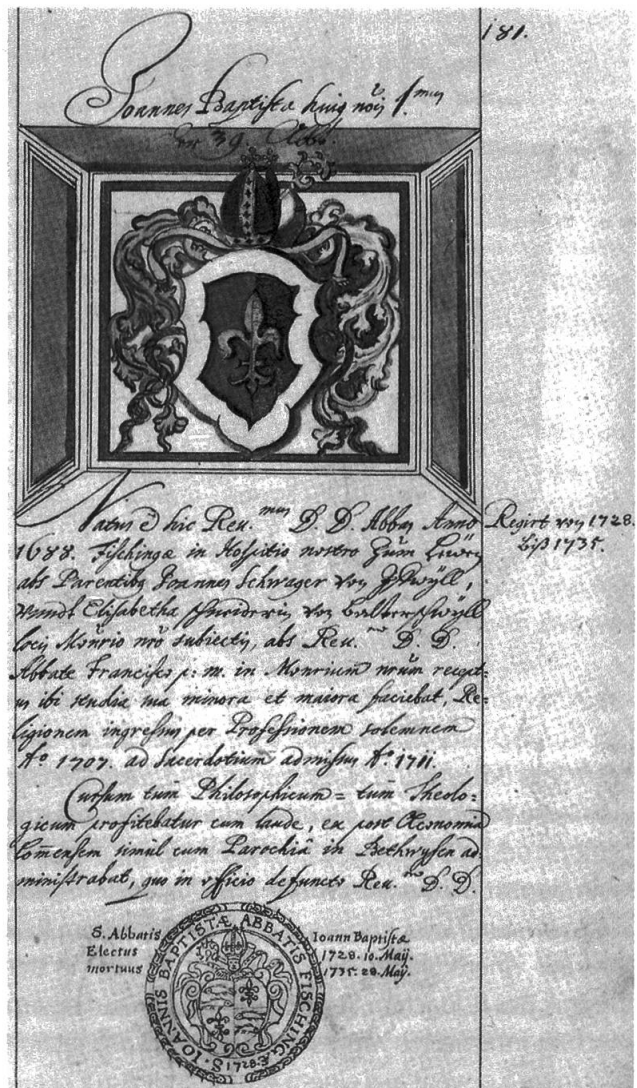 181.
Joannes Baptista huiq nõis 1.mus
39 Abbs.
Natus ẽ hic Reu.mus D. D. Abbas Anno
Regirt von 1728.
biß 1735.
1688. Fischingæ in Hospitio nostro Zum Lewen
abs Parentibq Joannes Schwager von
vnndt Elisabetha schneiderin von balterschwÿll
locis Monrio nrõ subiectis, abs Reu.mo D. D.
Abbate Francisco p: m. in Monrium nrũm recept-
us ibi studia sua minora et maiora faciebat, Re-
ligionem ingressus per Professionem solemnem
Aº 1707. ad sacerdotium admissus Aº. 1711.
Cursum tum̃ Philosophicum = tum̃ Theolo-
gicum profitebatur cum laude, ex post Œconomiã
Lom̃ensem simul cum Parochiâ in Bethwysen ad-
ministrabat, quo in officio defuncto Reu.mo D. D.
S. Abbatis Ioann Baptistæ
Electus 1728. 10. Maÿ.
mortuus 1735. 28. Maÿ.
S. IOANNIS BAPTISTÆ ABBATIS FISCHINGÆ
1728